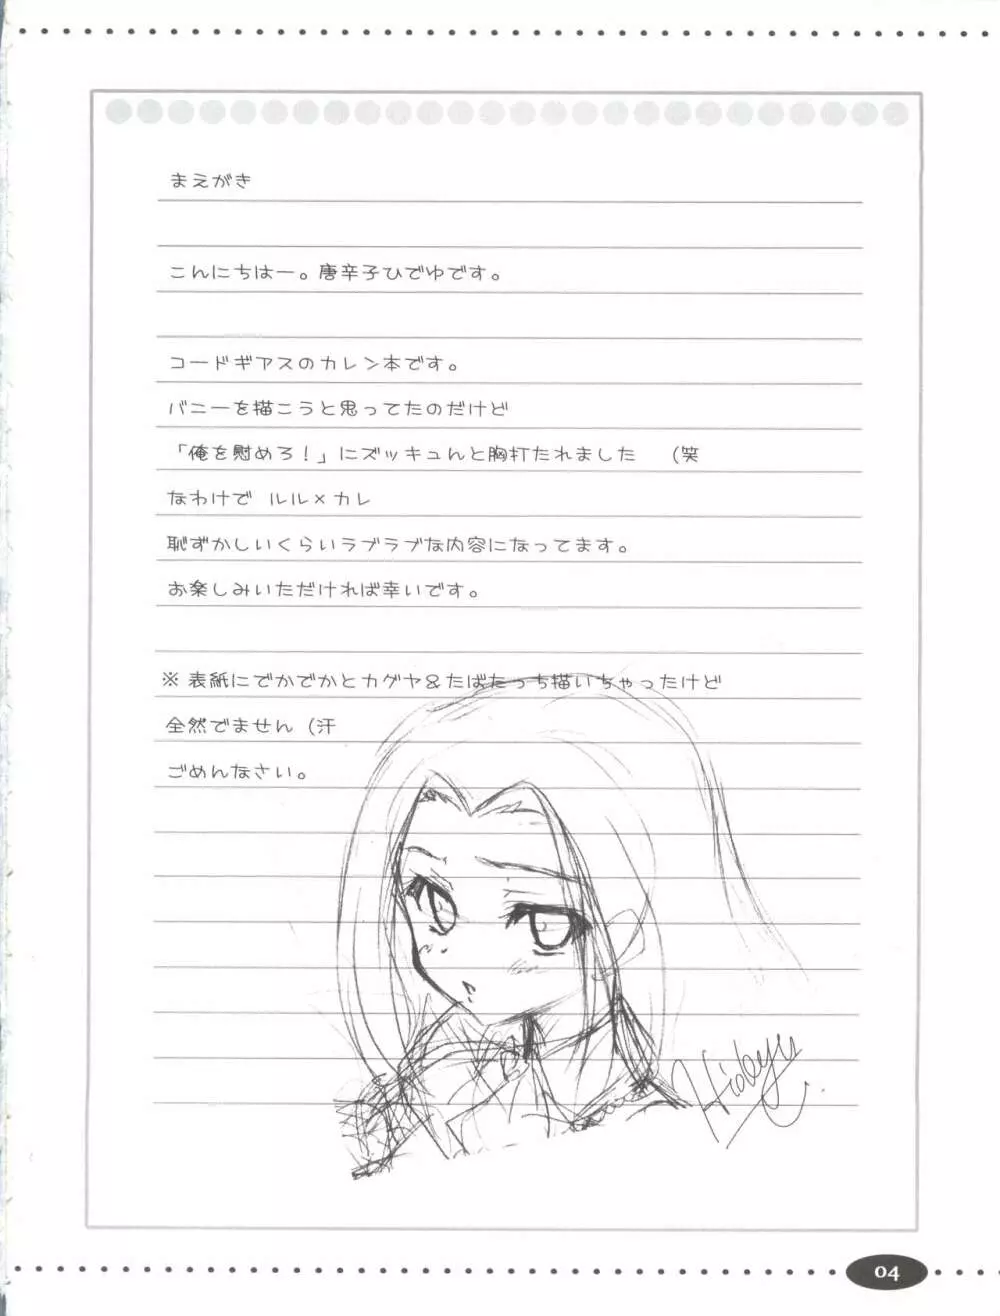 まえがき
こんにちはー。唐辛子ひでゆです。
コードギアスのカレン本です。
バニーを描こうと思ってたのだけど
「俺を慰めろ！」にズッキュんと胸打たれました　（笑
なわけで ルル×カレ
恥ずかしいくらいラブラブな内容になってます。
お楽しみいただければ幸いです。
※ 表紙にでかでかとカグヤ＆たばたっち描いちゃったけど
全然でません（汗
ごめんなさい。
Hideyu
04